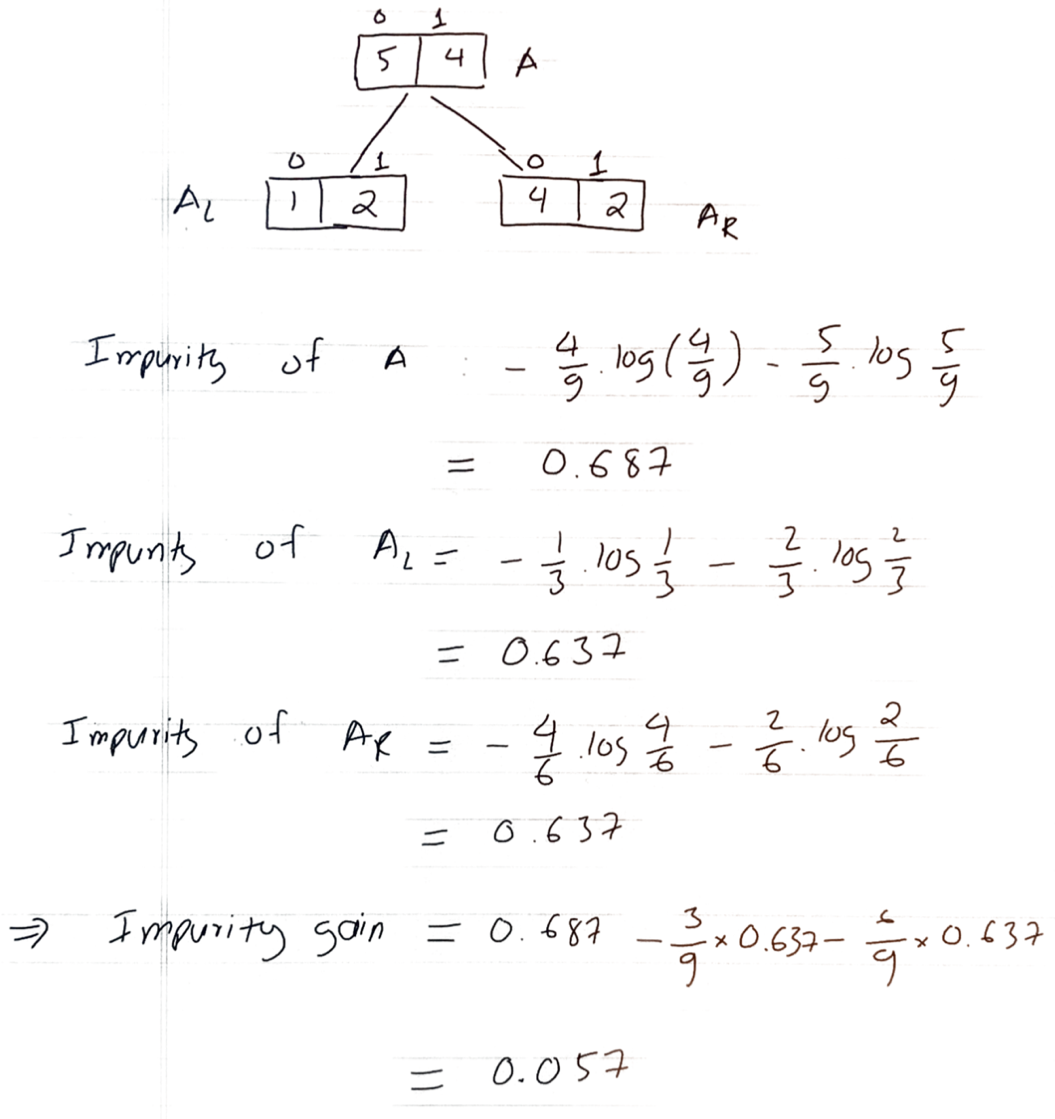 0 1
5 4 A
0 1 0 1
A_L 1 2 4 2 A_R
Impurity of A : - 4/9 . log(4/9) - 5/9 . log 5/9
= 0.687
Impurity of A_L = - 1/3 . log 1/3 - 2/3 . log 2/3
= 0.637
Impurity of A_R = - 4/6 . log 4/6 - 2/6 . log 2/6
= 0.637
⇒ Impurity gain = 0.687 - 3/9 × 0.637 - 6/9 × 0.637
= 0.057